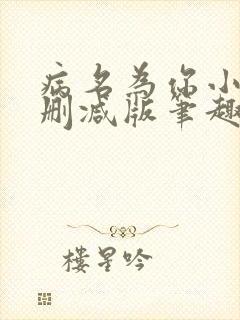 病名为你小
删减版笔趣
楼星吟